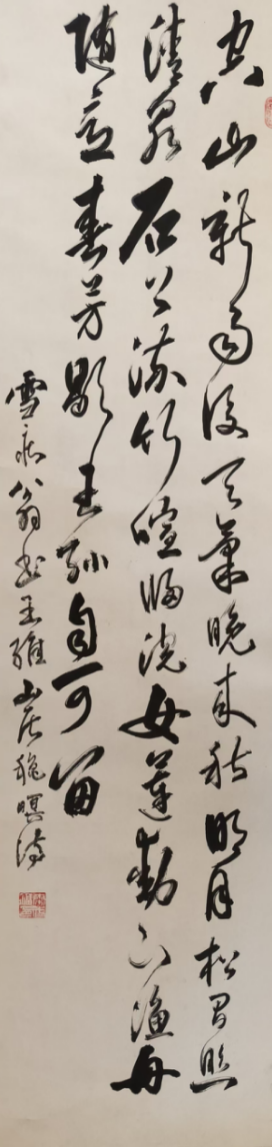 空山新雨後天氣晚来秋明月松間照
清泉石上流竹喧歸浣女蓮動下漁舟
随意春芳歇王孫自可留
雪翁書王維山居秋暝詩